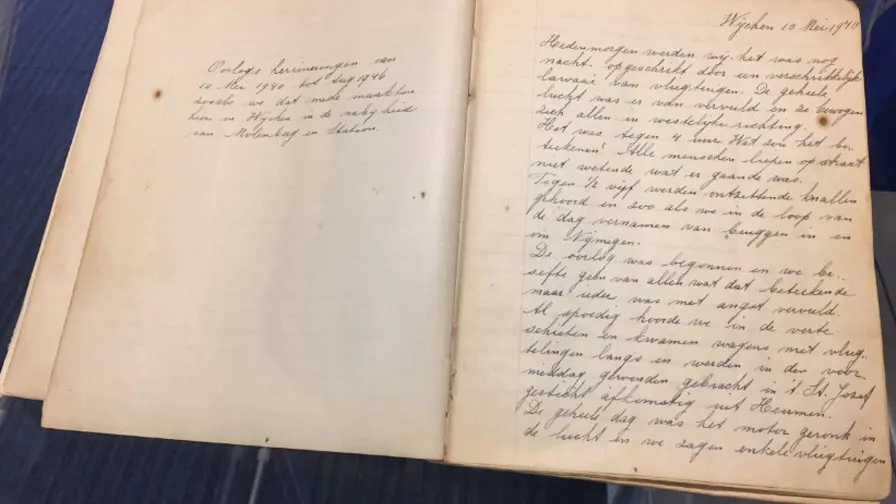 Oorlogs herrineringen van
10 Mei 1940 tot Aug 1946
zooals we dat mede maakten
hier in Wychen in de nabyheid
van Molenberg en Station
Wychen 10 Mei 1940
Hedenmorgen werden wij. het was nog
nacht. opgeschrikt door een verschrikkelijk
lawaai van vliegtuigen. De geheele
lucht was er van vervuld en ze bewogen
zich allen in westelijke richting.
Het was tegen 4 uur. Wat zou het be..
teekenen! Alle menschen liepen op straat
niet wetende wat er gaande was.
Tegen 1/2 vijf werden ontzettende knallen
gehoord en zoo als we in de loop van
de dag vernamen van bruggen in en
om Nijmegen.
De oorlog was begonnen en we be..
sefte geen van allen wat dat beteekende
maar ieder was met angst vervuld.
Al spoedig hoorde we in de verte
schieten en kwamen wagens met vlug..
telingen langs en werden in den voor..
middag gewonden gebracht in 't St. Jozef
gesticht afkomstig uit Heumen.
De geheele dag was het motor geronk in
de lucht en we zagen enkele vliegtuigen